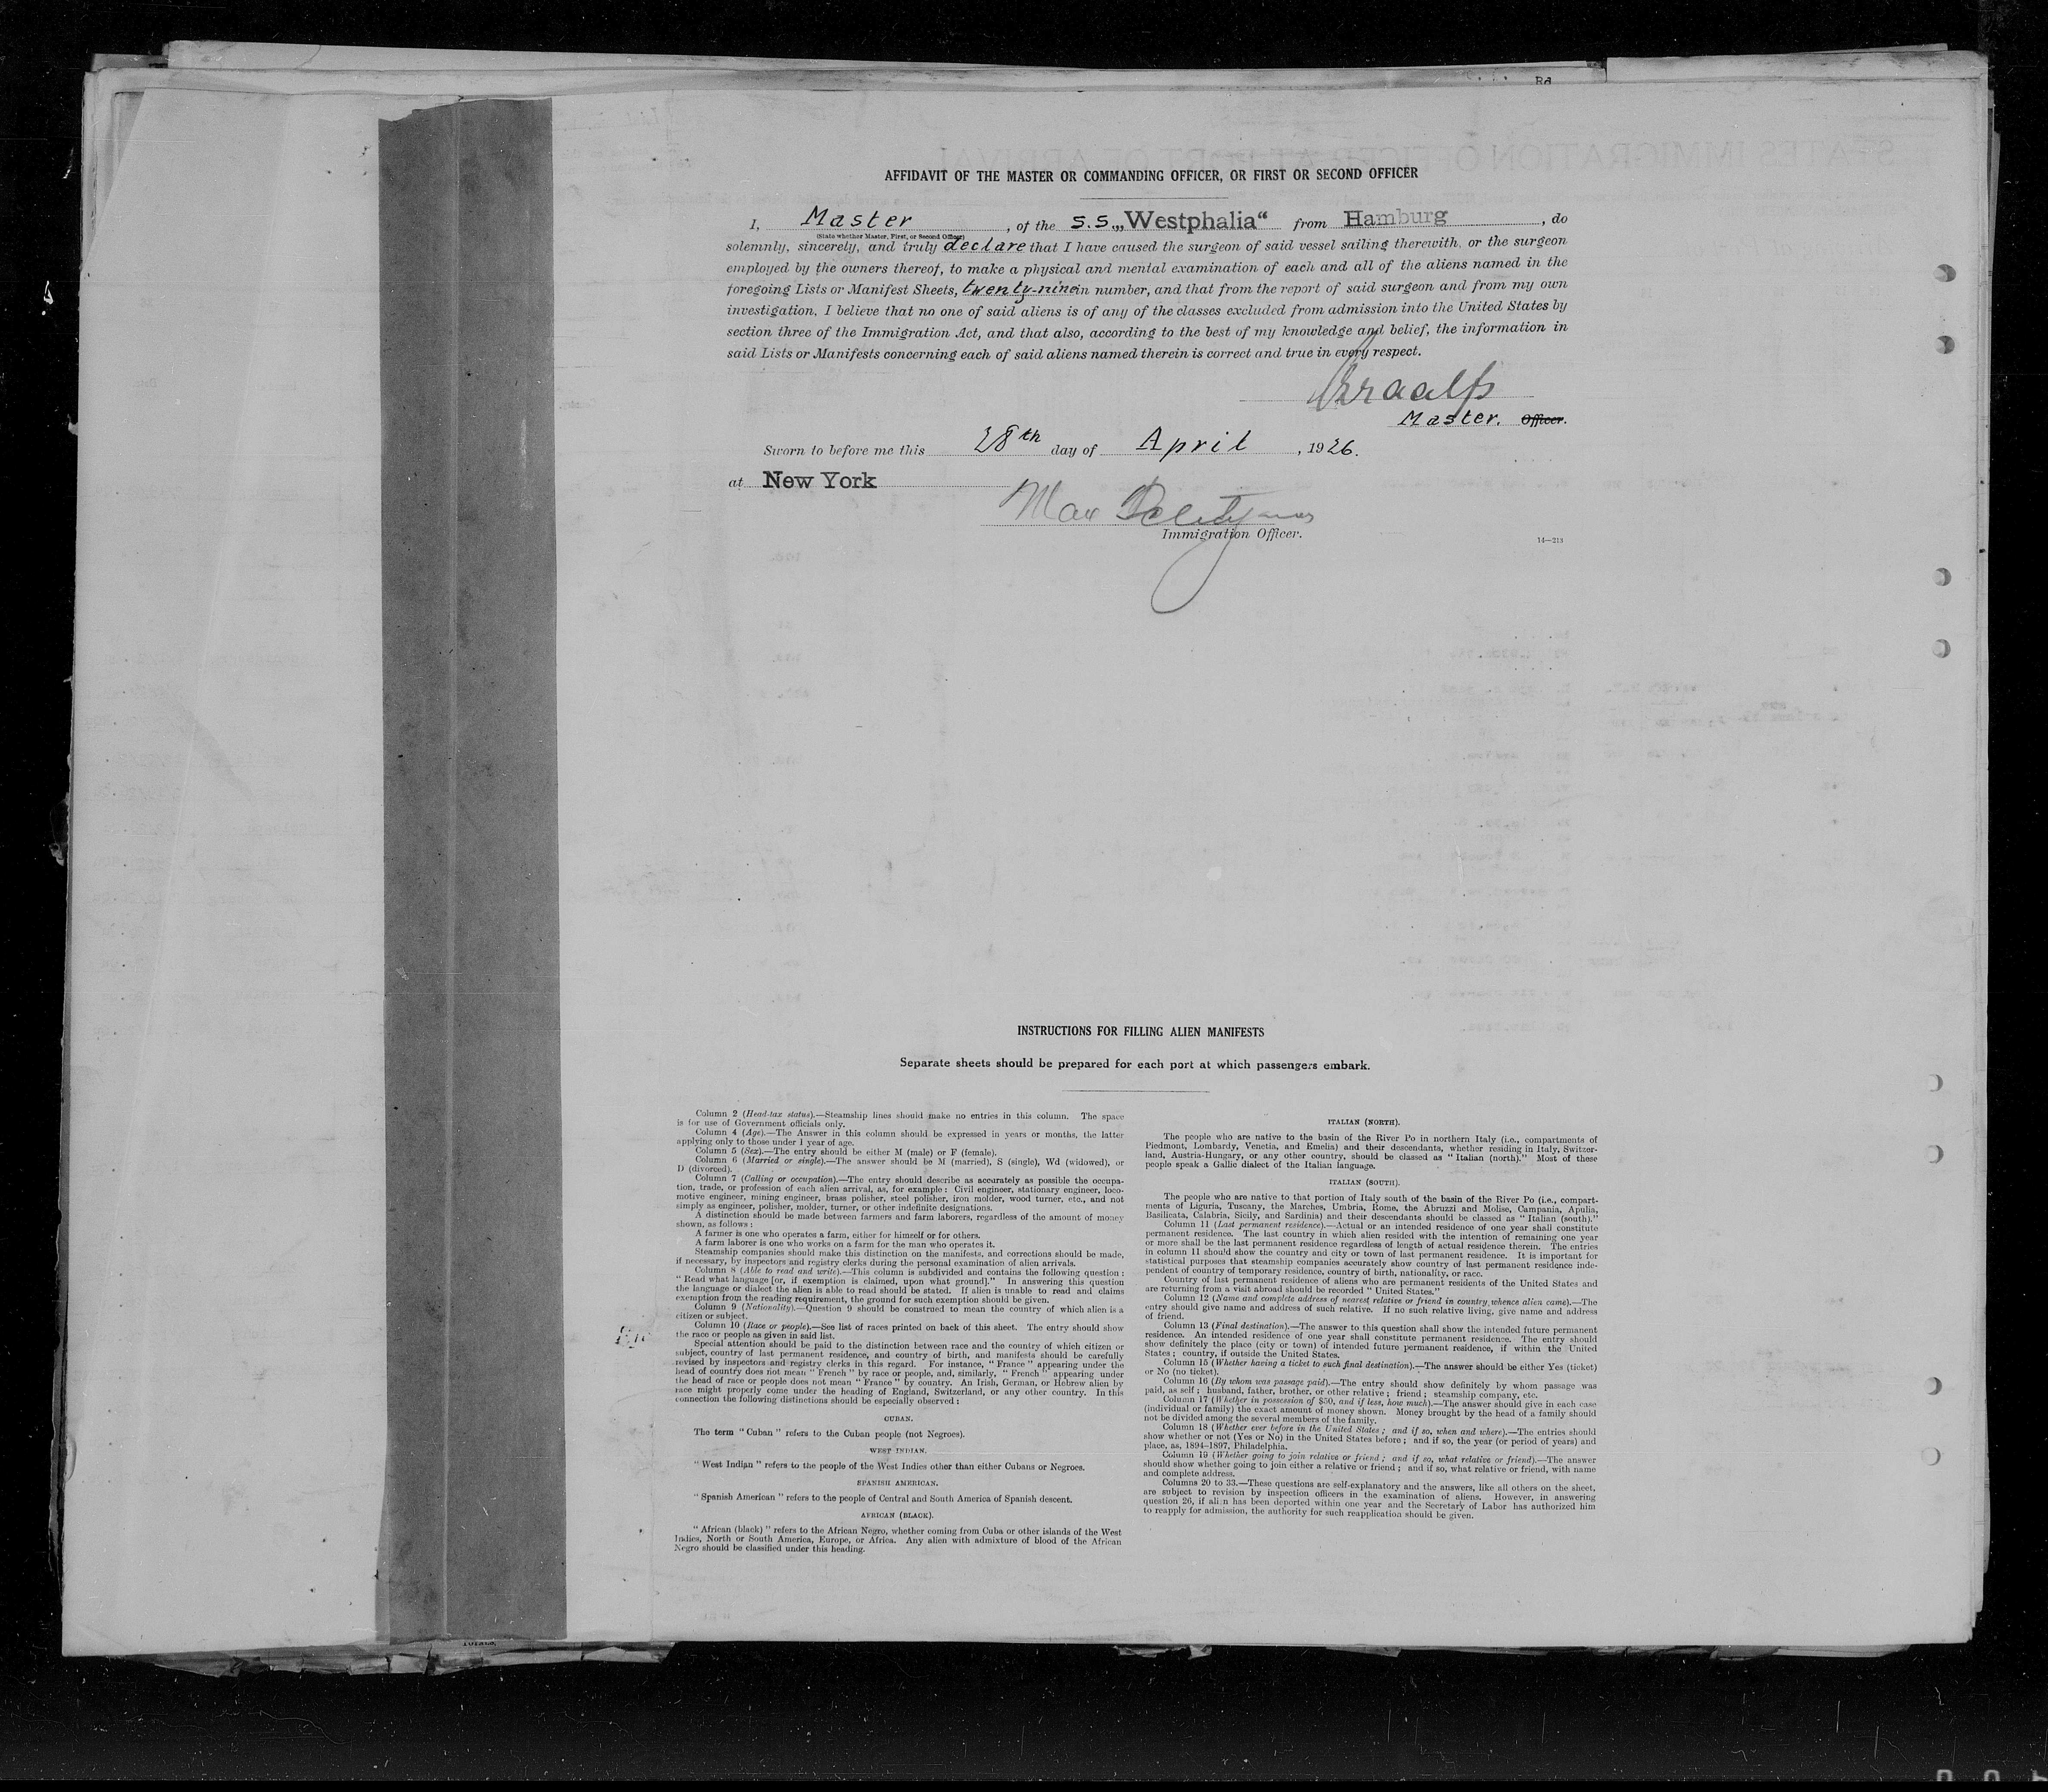 AFFIDAVIT OF THE MASTER OR COMMANDING OFFICER, OR FIRST OR SECOND OFFICER
I, Master, of the S.S. „Westphalia“ from Hamburg, do
(State whether Master, First, or Second Officer)
solemnly, sincerely, and truly declare that I have caused the surgeon of said vessel sailing therewith, or the surgeon
employed by the owners thereof, to make a physical and mental examination of each and all of the aliens named in the
foregoing Lists or Manifest Sheets, twenty-nine in number, and that from the report of said surgeon and from my own
investigation, I believe that no one of said aliens is of any of the classes excluded from admission into the United States by
section three of the Immigration Act, and that also, according to the best of my knowledge and belief, the information in
said Lists or Manifests concerning each of said aliens named therein is correct and true in every respect.
Master. Officer.
Sworn to before me this 28th day of April, 1926.
at New York
Max
Immigration Officer.
14—213
INSTRUCTIONS FOR FILLING ALIEN MANIFESTS
Separate sheets should be prepared for each port at which passengers embark.
Column 2 (Head-tax status).—Steamship lines should make no entries in this column. The space
is for use of Government officials only.
Column 4 (Age).—The Answer in this column should be expressed in years or months, the latter
applying only to those under 1 year of age.
Column 5 (Sex).—The entry should be either M (male) or F (female).
Column 6 (Married or single).—The answer should be M (married), S (single), Wd (widowed), or
D (divorced).
Column 7 (Calling or occupation).—The entry should describe as accurately as possible the occupa-
tion, trade, or profession of each alien arrival, as, for example: Civil engineer, stationary engineer, loco-
motive engineer, mining engineer, brass polisher, steel polisher, iron molder, wood turner, etc., and not
simply as engineer, polisher, molder, turner, or other indefinite designations.
A distinction should be made between farmers and farm laborers, regardless of the amount of money
shown, as follows:
A farmer is one who operates a farm, either for himself or for others.
A farm laborer is one who works on a farm for the man who operates it.
Steamship companies should make this distinction on the manifests, and corrections should be made,
if necessary, by inspectors and registry clerks during the personal examination of alien arrivals.
Column 8 (Able to read and write).—This column is subdivided and contains the following question:
“Read what language [or, if exemption is claimed, upon what ground].” In answering this question
the language or dialect the alien is able to read should be stated. If alien is unable to read and claims
exemption from the reading requirement, the ground for such exemption should be given.
Column 9 (Nationality).—Question 9 should be construed to mean the country of which alien is a
citizen or subject.
Column 10 (Race or people).—See list of races printed on back of this sheet. The entry should show
the race or people as given in said list.
Special attention should be paid to the distinction between race and the country of which citizen or
subject, country of last permanent residence, and country of birth, and manifests should be carefully
revised by inspectors and registry clerks in this regard. For instance, “France” appearing under the
head of country does not mean “French” by race or people, and, similarly, “French” appearing under
the head of race or people does not mean “France” by country. An Irish, German, or Hebrew alien by
race might properly come under the heading of England, Switzerland, or any other country. In this
connection the following distinctions should be especially observed:
CUBAN.
The term “Cuban” refers to the Cuban people (not Negroes).
WEST INDIAN.
“West Indian” refers to the people of the West Indies other than either Cubans or Negroes.
SPANISH AMERICAN.
“Spanish American” refers to the people of Central and South America of Spanish descent.
AFRICAN (BLACK).
“African (black)” refers to the African Negro, whether coming from Cuba or other islands of the West
Indies, North or South America, Europe, or Africa. Any alien with admixture of blood of the African
Negro should be classified under this heading.
ITALIAN (NORTH).
The people who are native to the basin of the River Po in northern Italy (i.e., compartments of
Piedmont, Lombardy, Venetia, and Emelia) and their descendants, whether residing in Italy, Switzer-
land, Austria-Hungary, or any other country, should be classed as “Italian (north).” Most of these
people speak a Gallic dialect of the Italian language.
ITALIAN (SOUTH).
The people who are native to that portion of Italy south of the basin of the River Po (i.e., compart-
ments of Liguria, Tuscany, the Marches, Umbria, Rome, the Abruzzi and Molise, Campania, Apulia,
Basilicata, Calabria, Sicily, and Sardinia) and their descendants should be classed as “Italian (south).”
Column 11 (Last permanent residence).—Actual or an intended residence of one year shall constitute
permanent residence. The last country in which alien resided with the intention of remaining one year
or more shall be the last permanent residence regardless of length of actual residence therein. The entries
in column 11 should show the country and city or town of last permanent residence. It is important for
statistical purposes that steamship companies accurately show country of last permanent residence inde-
pendent of country of temporary residence, country of birth, nationality, or race.
Country of last permanent residence of aliens who are permanent residents of the United States and
are returning from a visit abroad should be recorded “United States.”
Column 12 (Name and complete address of nearest relative or friend in country whence alien came).—The
entry should give name and address of such relative. If no such relative living, give name and address
of friend.
Column 13 (Final destination).—The answer to this question shall show the intended future permanent
residence. An intended residence of one year shall constitute permanent residence. The entry should
show definitely the place (city or town) of intended future permanent residence, if within the United
States; country, if outside the United States.
Column 15 (Whether having a ticket to such final destination).—The answer should be either Yes (ticket)
or No (no ticket).
Column 16 (By whom was passage paid).—The entry should show definitely by whom passage was
paid, as self; husband, father, brother, or other relative; friend; steamship company, etc.
Column 17 (Whether in possession of $50, and if less, how much).—The answer should give in each case
(individual or family) the exact amount of money shown. Money brought by the head of a family should
not be divided among the several members of the family.
Column 18 (Whether ever before in the United States; and if so, when and where).—The entries should
show whether or not (Yes or No) in the United States before; and if so, the year (or period of years) and
place, as, 1894–1897, Philadelphia.
Column 19 (Whether going to join relative or friend; and if so, what relative or friend).—The answer
should show whether going to join either a relative or friend; and if so, what relative or friend, with name
and complete address.
Columns 20 to 33.—These questions are self-explanatory and the answers, like all others on the sheet,
are subject to revision by inspection officers in the examination of aliens. However, in answering
question 26, if alien has been deported within one year and the Secretary of Labor has authorized him
to reapply for admission, the authority for such reapplication should be given.